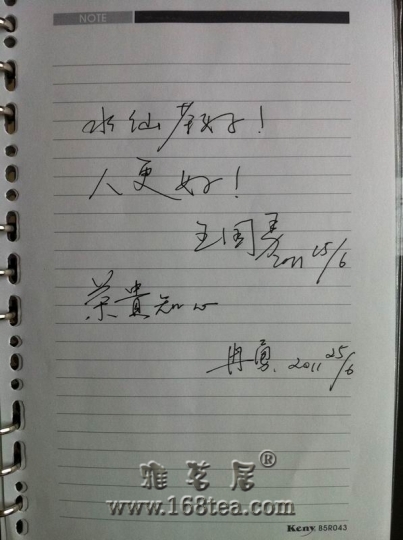 NOTE
水仙茶好!
人更好!
王国 2011 25/6
茶貴知心
冉勇. 2011 25/6
雅茗居®
www.168tea.com
Keny 85R043